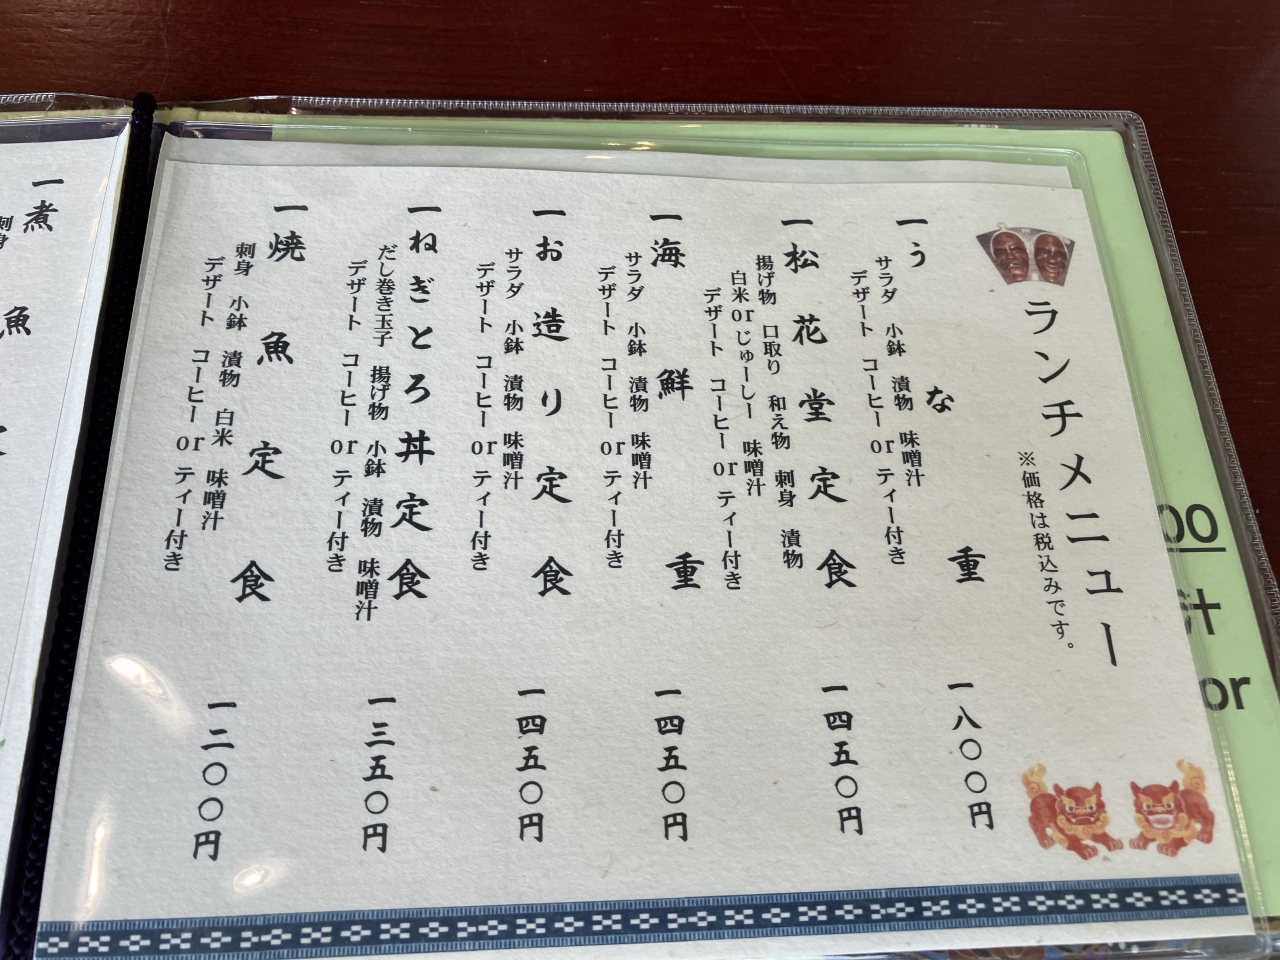 ランチメニュー
※価格は税込みです。
一うな重 一八〇〇円
サラダ 小鉢 漬物 味噌汁
デザート コーヒーorティー付き
一松花堂定食 一四五〇円
揚げ物 口取り 和え物 刺身 漬物
白米orじゅーしー 味噌汁
デザート コーヒーorティー付き
一海鮮重 一四五〇円
サラダ 小鉢 漬物 味噌汁
デザート コーヒーorティー付き
一お造り定食 一四五〇円
サラダ 小鉢 漬物 味噌汁
デザート コーヒーorティー付き
一ねぎとろ丼定食 一三五〇円
だし巻き玉子 揚げ物 小鉢 漬物 味噌汁
デザート コーヒーorティー付き
一焼魚定食 一二〇〇円
刺身 小鉢 漬物 白米 味噌汁
デザート コーヒーorティー付き
一煮魚
刺身
00
汁
or